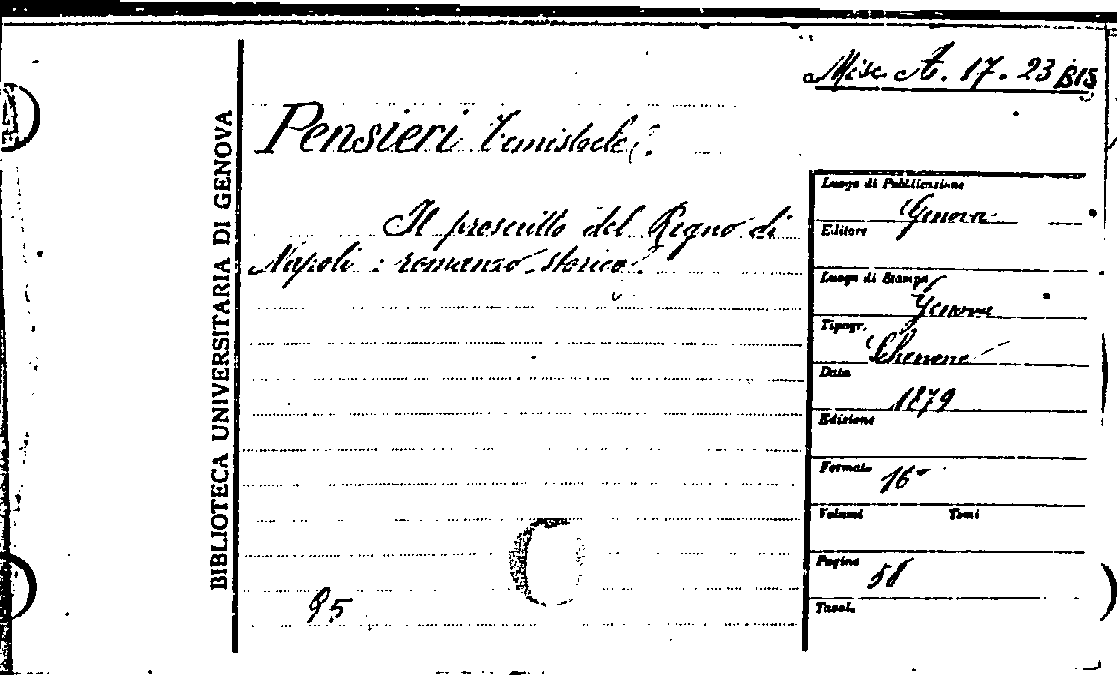 Misc. A. 17. 23 BIS
BIBLIOTECA UNIVERSITARIA DI GENOVA
Pensieri
Il proscritto del Regno di
Napoli : romanzo storico.
95
Luogo di Pubblicazione
Genova
Editore
Luogo di Stampa
Genova
Tipogr.
Schenone
Data
1879
Edizione
Formato 16°
Volumi Tomi
Pagine 58
Tavole